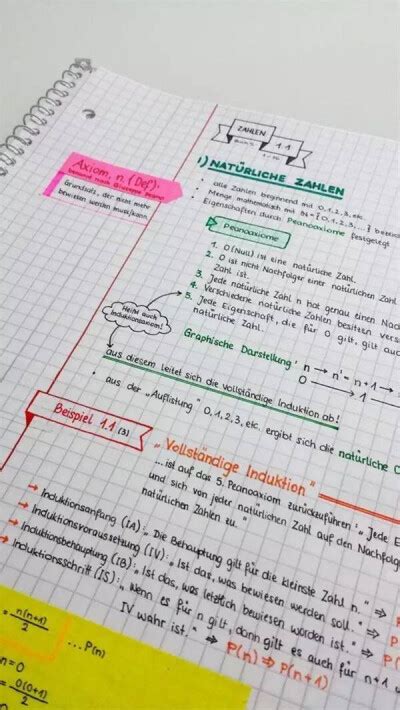 ZAHLEN
1.1
1) NATÜRLICHE ZAHLEN
Axiom, n. (Def):
benannt nach Giuseppe Peano
Grundsatz, der nicht mehr
bewiesen werden muss/kann
• alle Zahlen beginnend mit 0,1,2,3, etc.
• Menge mathematisch mit ℕ = {0,1,2,3,...}
• Eigenschaften durch Peanoaxiome festgelegt
Peanoaxiome
1. 0 (Null) ist eine natürliche Zahl.
2. 0 ist nicht Nachfolger einer natürlichen Zahl
3. Jede natürliche Zahl n hat genau einen
Zahl ist.
4. Verschiedene natürliche Zahlen besitzen
5. Jede Eigenschaft, die für 0 gilt, gilt
natürliche Zahl.
Heißt auch
Induktionsaxiom!
Graphische Darstellung: n → n' = n+1 →
0 → 1
aus diesem leitet sich die vollständige Induktion ab!
• aus der „Auflistung" 0,1,2,3, etc. ergibt sich die natürliche
Beispiel 1.1 (3)
„Vollständige Induktion"
... ist auf das 5. Peanoaxiom zurückzuführen: „Jede
und sich von jeder natürlichen Zahl auf den
natürlichen Zahlen zu."
→ Induktionsanfang (IA): „Die Behauptung gilt für die kleinste Zahl n." ⇒
→ Induktionsvoraussetzung (IV): „Ist das, was bewiesen werden soll." ⇒
→ Induktionsbehauptung (IB): „Ist das, was letztlich bewiesen worden ist." ⇒
→ Induktionsschritt (IS): „Wenn es für n gilt, dann gilt es auch für n+1
IV wahr ist." ⇒ P(n) ⇒ P(n+1)
= n(n+1)/2 ... P(n)
n=0
= 0(0+1)/2